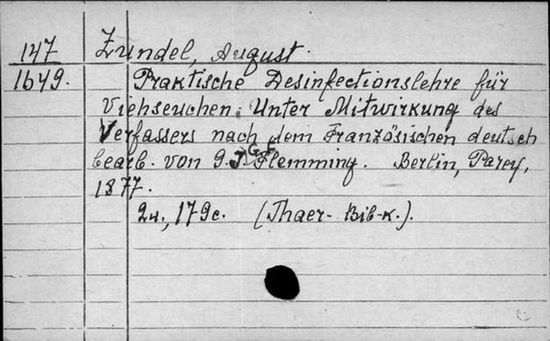 147 Zundel, August.
1649. Praktische Desinfectionslehre für
Viehseuchen. Unter Mitwirkung des
Verfassers nach dem Französischen deutsch
bearb. von G. F. Flemming. Berlin, Parey,
1877.
2н., 179с. (Thaer-Bib-к.).